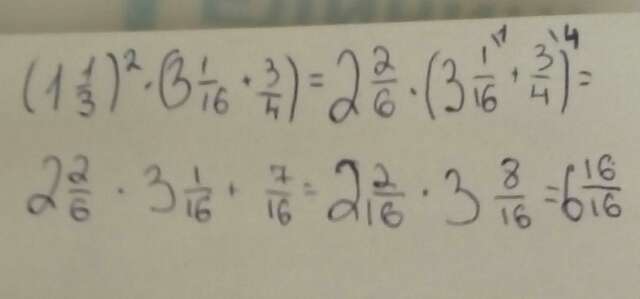 (1 1/3)² · (3 1/16 + 3/4) = 2 2/6 · (3 1/16 \1 + 3/4 \4) =
2 2/6 · 3 1/16 + 7/16 = 2 2/16 · 3 8/16 = 6 16/16